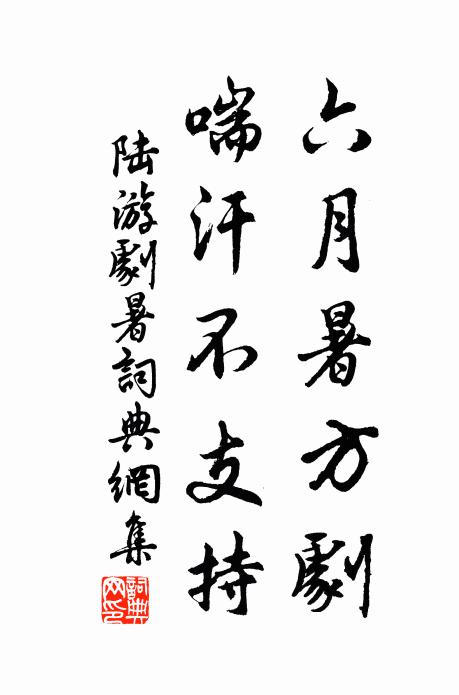 六月暑方劇
喘汗不支持
陆游劇暑詞典網集
詞典
网印